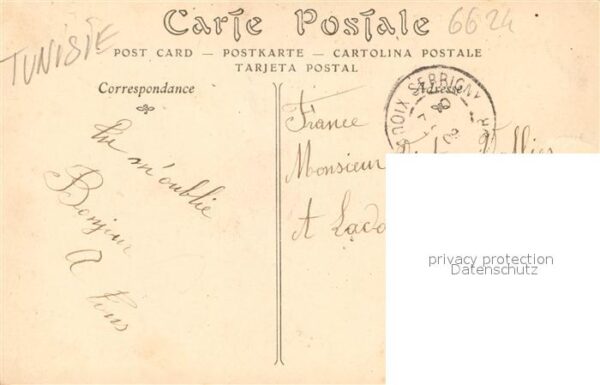 Carte Postale
6624
TUNISIE
POST CARD — POSTKARTE — CARTOLINA POSTALE
TARJETA POSTAL
Correspondance
Adresse
SERRIGNY
Tu m'oublie
Bonjour
A Tous
France
Monsieur
A
privacy protection
Datenschutz